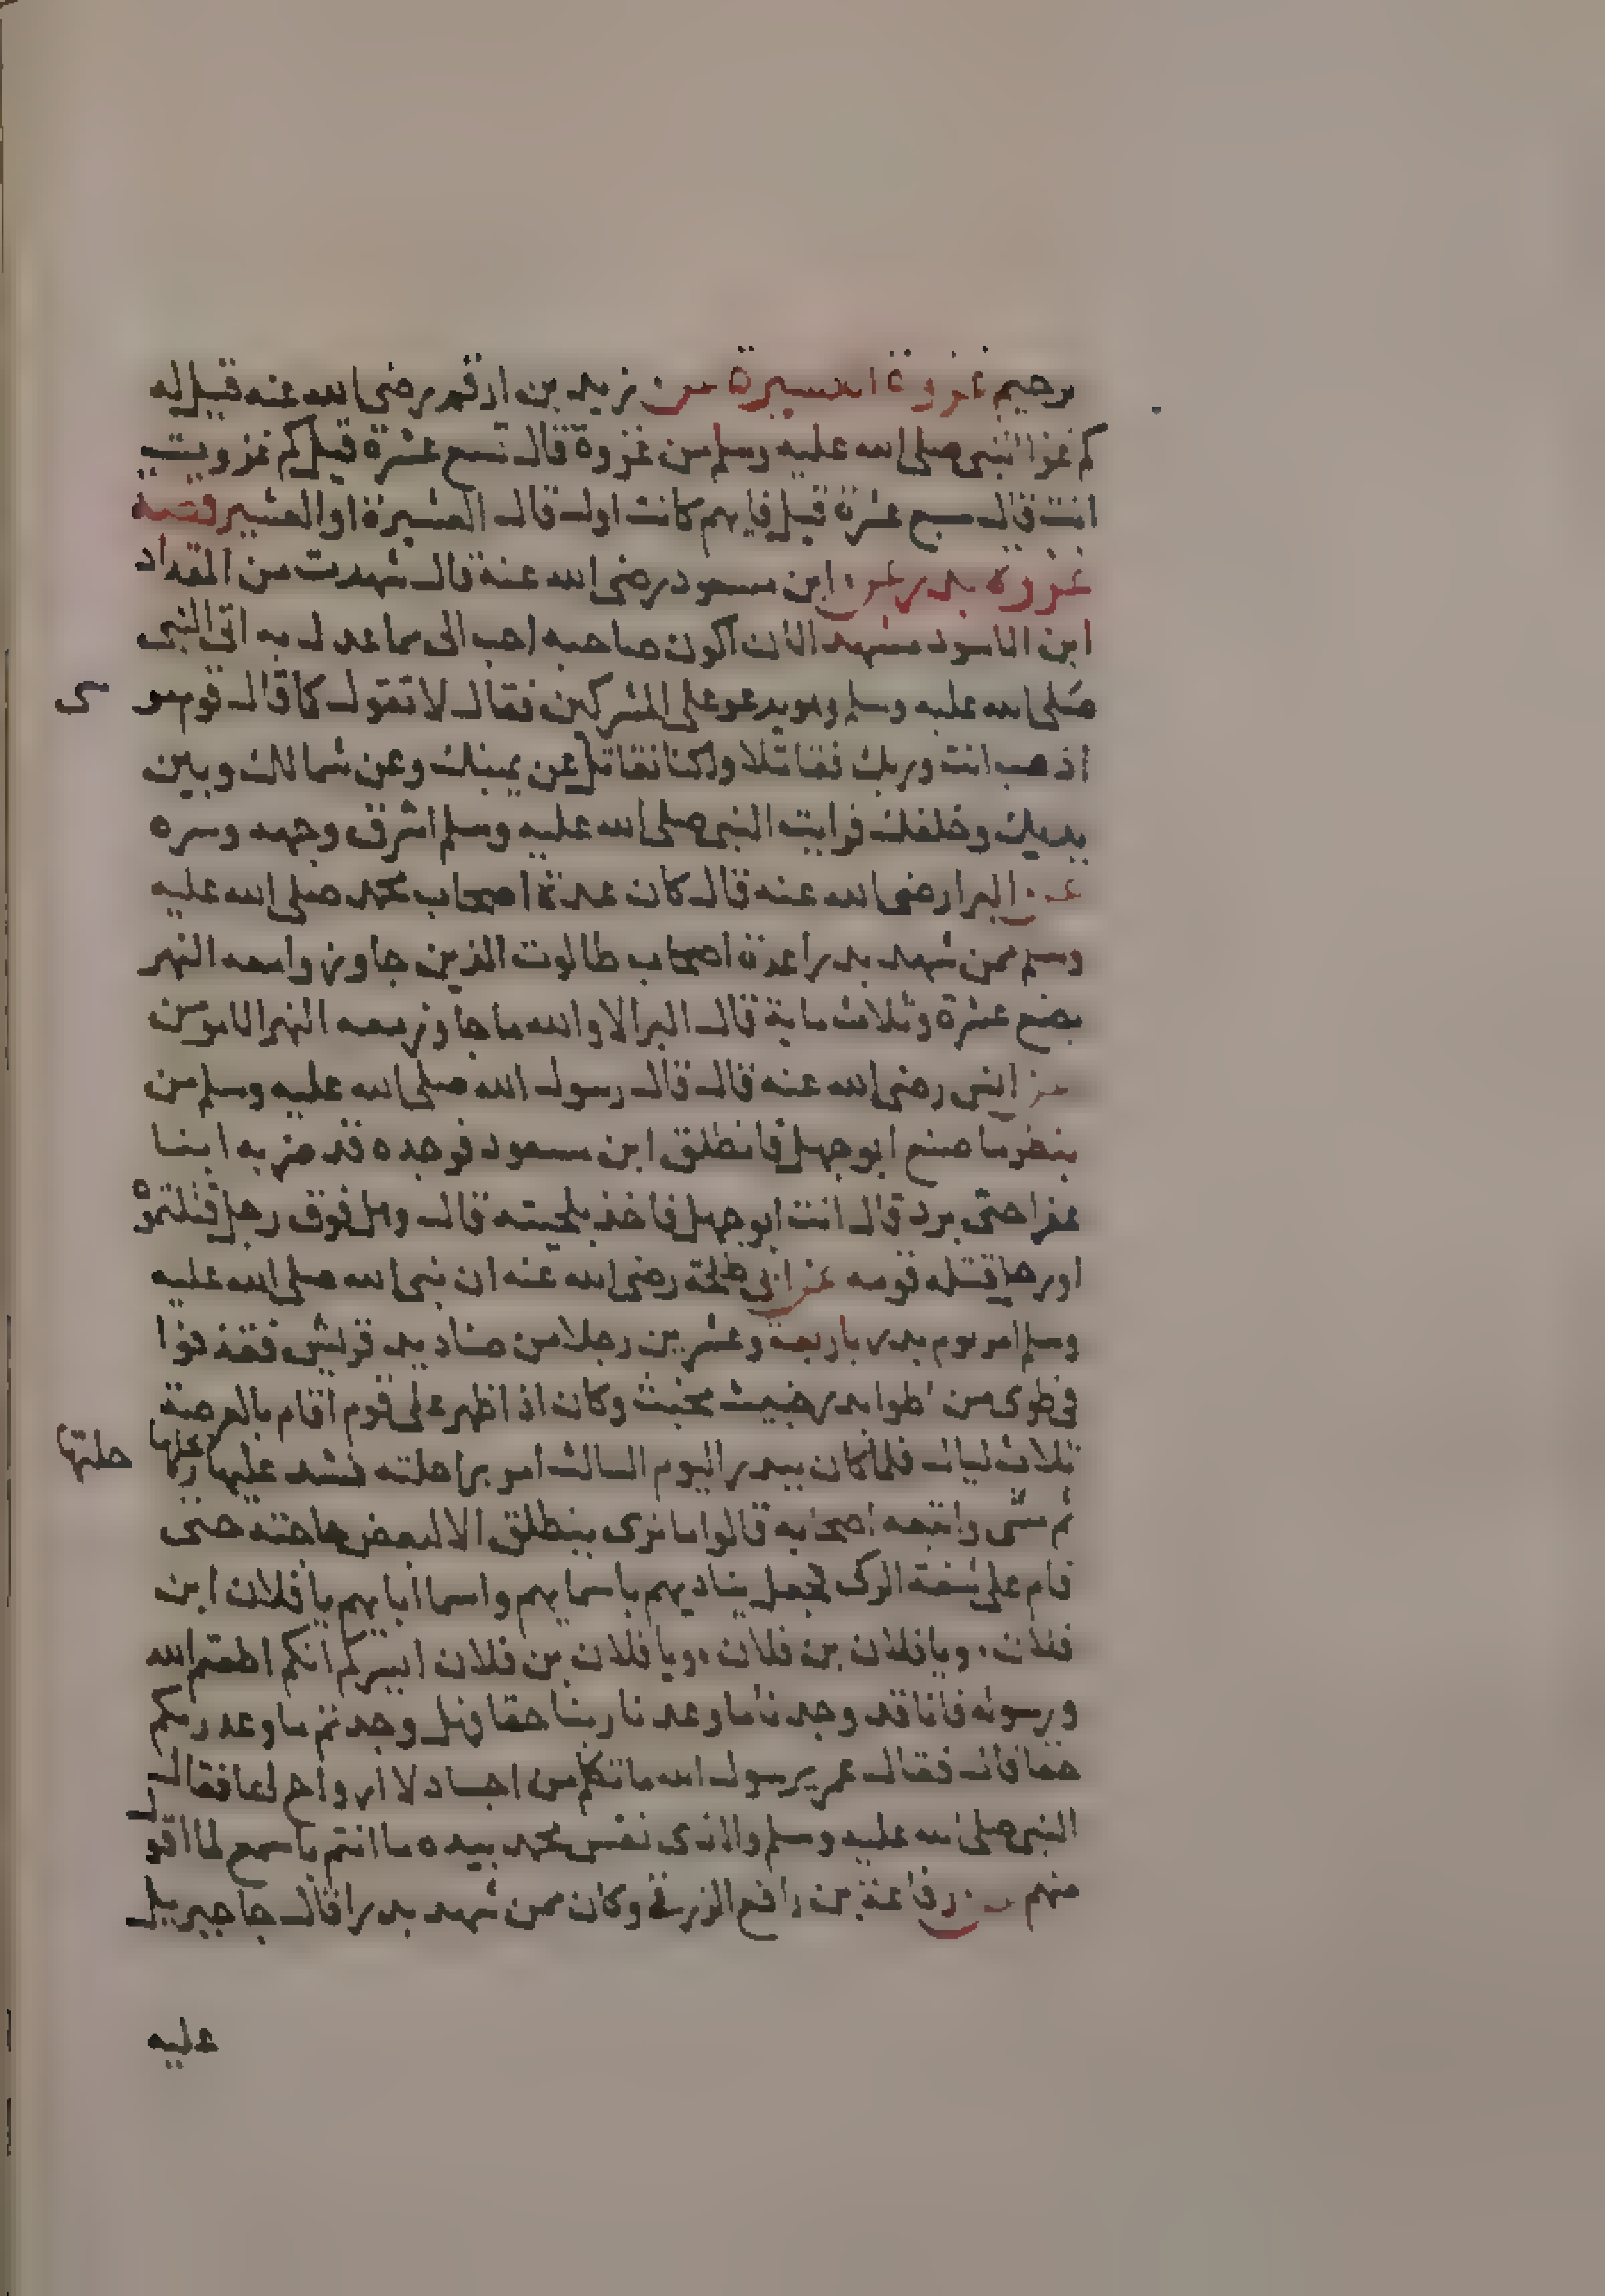 رحيم غزوة العسيرة عن زيد بن ارقم رضى الله عنه قيل له
كم غزا النبى صلى الله عليه وسلم من غزوة قال تسع عشرة قيل كم غزويت
انت قال سبع عشرة قيل فايهم كانت اول قال العسيرة او العشير قصة
غزوة بدر عن ابن مسعود رضى الله عنه قال شهدت من المقداد
ابن الاسود مشهد الان اكون صاحبه احب الى مما عدل به اتى النبى
صلى الله عليه وسلم وهو يدعو على المشركين فقال لا تقول كما قال قوم مو
سى
اذهب انت وربك فقاتلا ولكنا نقاتل عن يمينك وعن شمالك وبين
يديك وخلفك فرايت النبى صلى الله عليه وسلم اشرق وجهه وسره
عن البرا رضى الله عنه قال كان عدة اصحاب محمد صلى الله عليه
وسلم ممن شهد بدرا عدة اصحاب طالوت الذين جاوزوا معه النهر
بضع عشرة وثلاث ماية قال البرا لا والله ما جاوز معه النهر الا مومن
عن انس رضى الله عنه قال قال رسول الله صلى الله عليه وسلم من
ينظر ما صنع ابو جهل فانطلق ابن مسعود فوجده قد ضربه ابنا
عفرا حتى برد قال انت ابو جهل فاخذ بلحيته قال وهل فوق رجل قتلتموه
او رجل قتله قومه عن ابى طلحة رضى الله عنه ان نبى الله صلى الله عليه
وسلم امر يوم بدر باربعة وعشرين رجلا من صناديد قريش فقذفوا
فى طوى من اطوا بدر خبيث مخبث وكان اذا ظهر على قوم اقام بالعرصة
ثلاث ليال فلما كان ببدر اليوم الثالث امر براحلته فشد عليها رحلها
حلتها
ثم مشى واتبعه اصحابه قالوا ما نرى ينطلق الا لبعض حاجته حتى
قام على شفة الركى فجعل يناديهم باسمايهم واسما ابايهم يا فلان ابن
فلان ويا فلان بن فلان ويا فلان بن فلان ايسركم انكم اطعتم الله
ورسوله فانا قد وجدنا ما وعدنا ربنا حقا فهل وجدتم ما وعد ربكم
حقا قال فقال عمر يرسول الله ما تكلم من اجساد لا ارواح لها فقال
النبى صلى الله عليه وسلم والذى نفس محمد بيده ما انتم باسمع لما اقول
منهم عن رفاعة بن رافع الزرقى وكان ممن شهد بدرا قال جا جبريل
عليه